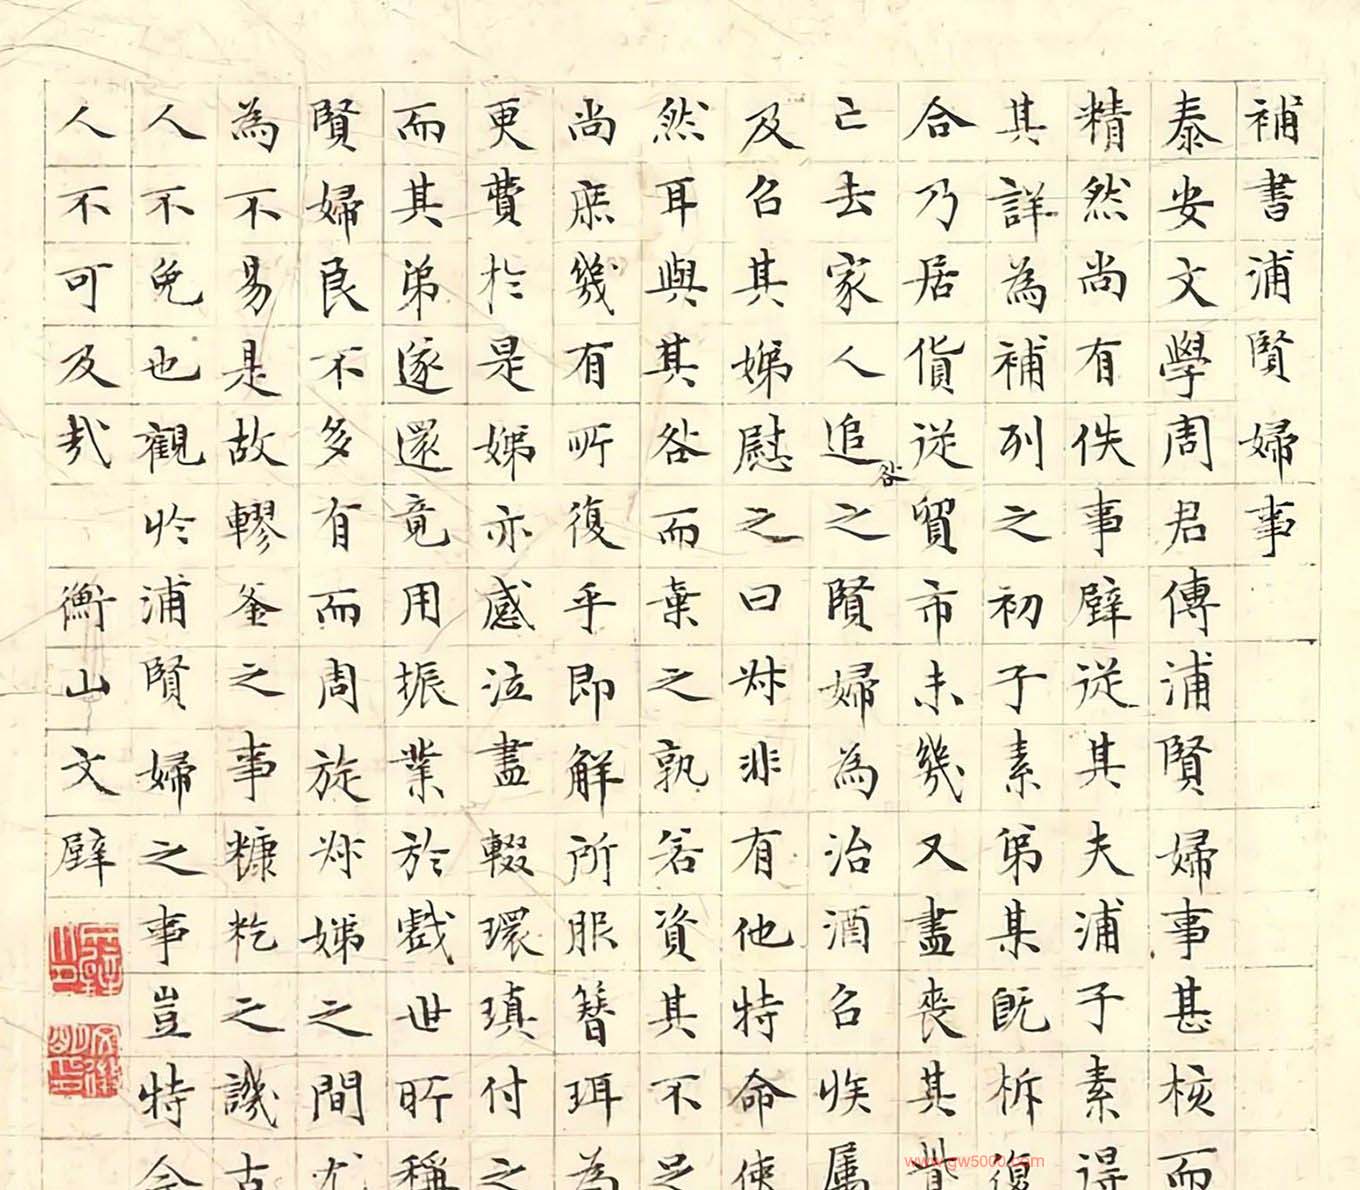 補書浦賢婦事
泰安文學周君傳浦賢婦事甚核而
精然尚有佚事壁從其夫浦子素得
其詳為補列之初子素弟某既柝復
合乃居貨從貿市未幾又盡喪其貲
亡去家人追咎之賢婦為治酒召族属
及召其娣慰之曰叔非有他特命使
然耳與其咎而棄之孰若資其不足
尚庶幾有所復乎即解所服簪珥為
更費於是娣亦感泣盡輟環瑱付之
而其弟遂還竟用振業於戲世所稱
賢婦良不多有而周旋叔娣之間尤
為不易是故轇釜之事糠籺之譏古
人不免也觀於浦賢婦之事豈特今
人不可及哉 衡山文壁
www.gw5000.com